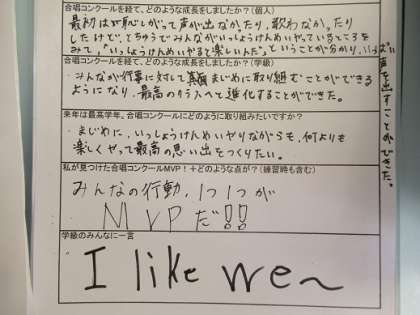 合唱コンクールを経て、どのような成長をしましたか？(個人)
最初はや恥しがって声が出なかったり、歌わなかったり
したけど、とちゅうでみんながいっしょうけんめいやっているところを
みて、"いっしょうけんめいやると楽しいんだ"ということが分かり、いっぱい声を出すことができた。
合唱コンクールを経て、どのような成長をしましたか？(学級)
みんなが行事に対して真剣まじめに取り組むことができる
ようになり、最高のクラスへと進化することができた。
来年は最高学年。合唱コンクールにどのように取り組みたいですか？
まじめに、いっしょうけんめいやりながらも、何よりも
楽しくやって最高の思い出をつくりたい。
私が見つけた合唱コンクールMVP！+どのような点が？(練習時も含む)
みんなの行動、1つ1つが
MVPだ!!
学級のみんなに一言
I like we～